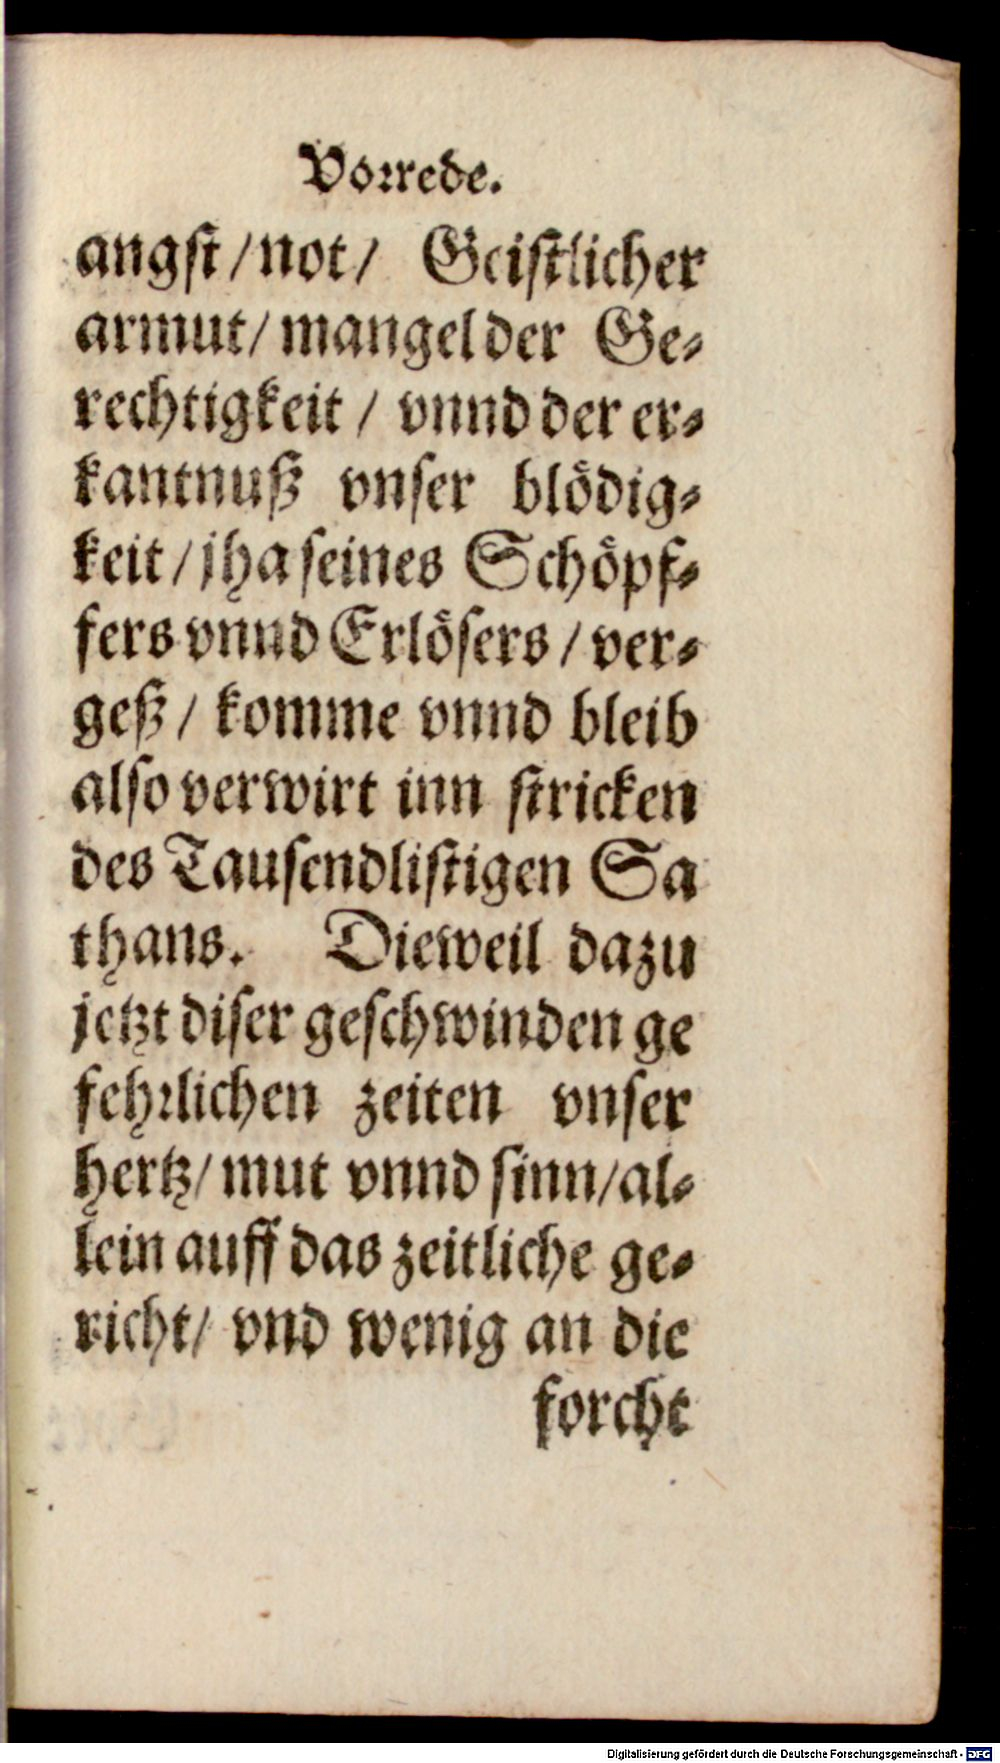 Vorrede.
angst / not / Geistlicher
armut / mangel der Ge⸗
rechtigkeit / vnnd der er⸗
kantnuß vnser blödig⸗
keit / jha seines Schöpf⸗
fers vnnd Erlösers / ver⸗
geß / komme vnnd bleib
also verwirt inn stricken
des Tausendlistigen Sa
thans. Dieweil dazu
jetzt diser geschwinden ge
fehrlichen zeiten vnser
hertz / mut vnnd sinn / al⸗
lein auff das zeitliche ge⸗
richt / vnd wenig an die
forcht
Digitalisierung gefördert durch die Deutsche Forschungsgemeinschaft - DFG